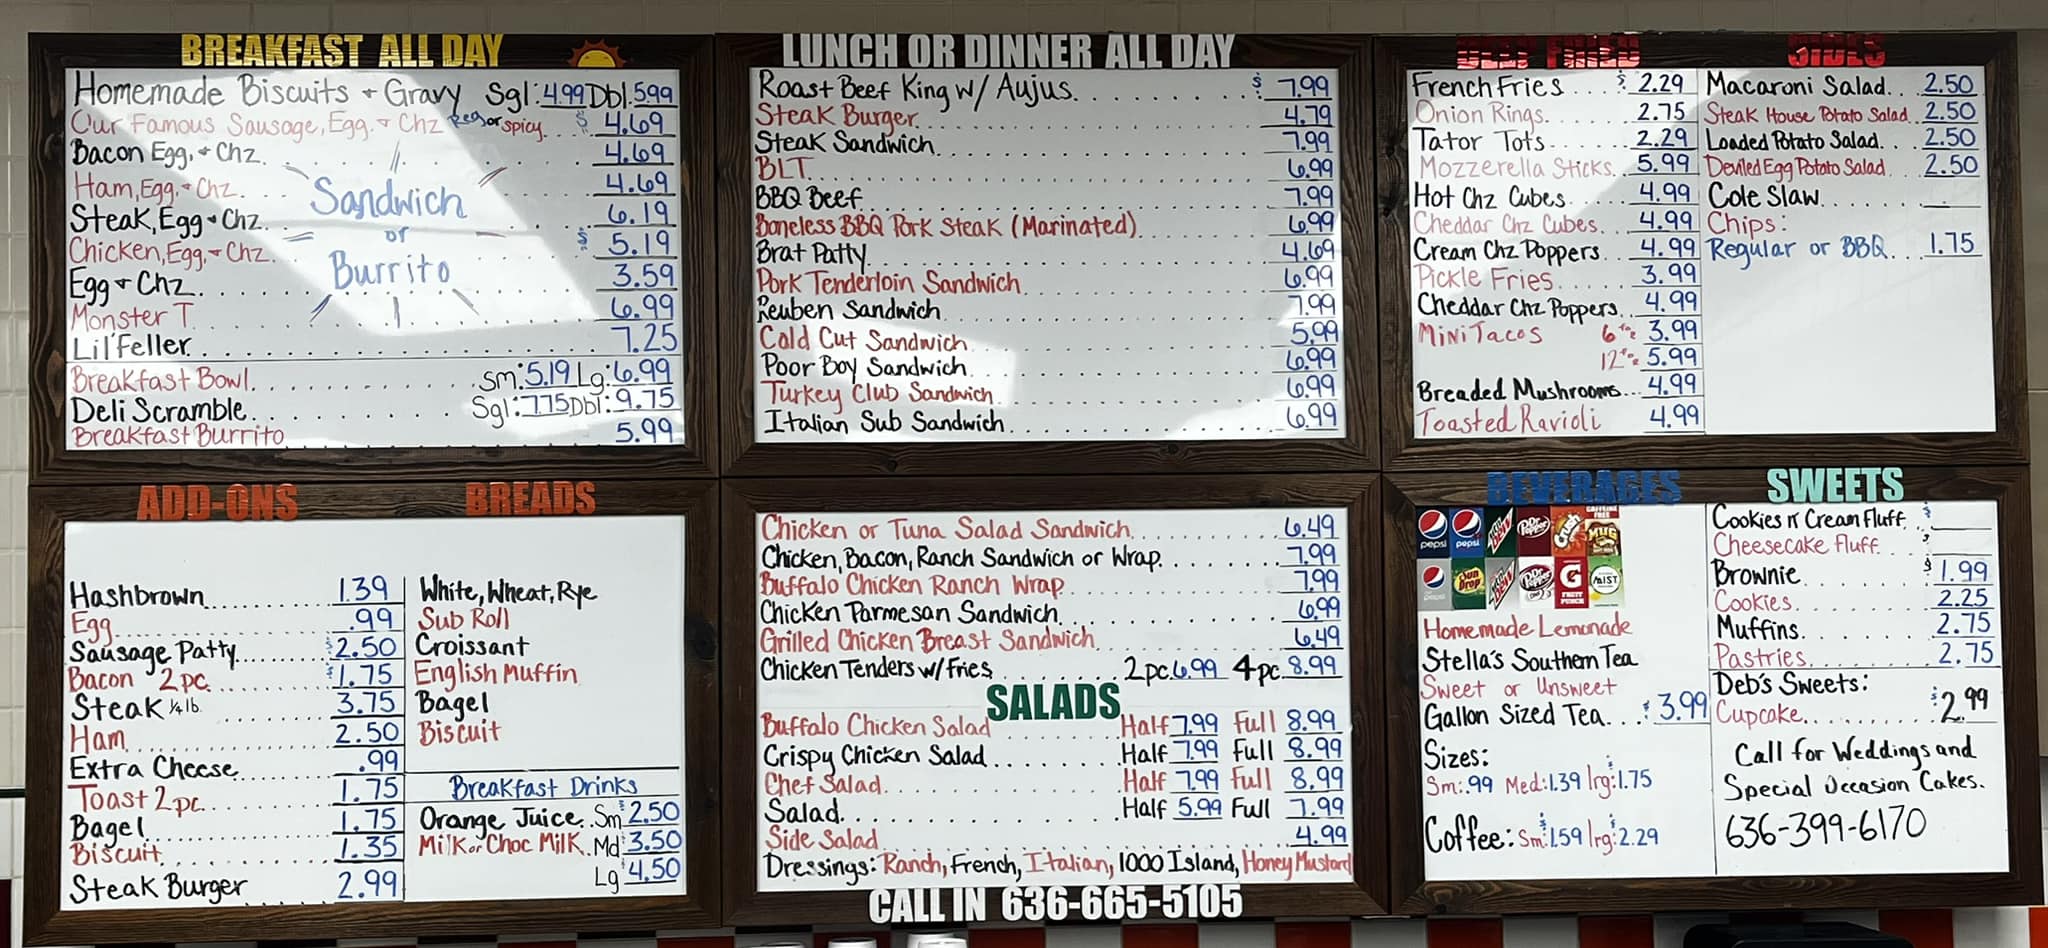 BREAKFAST ALL DAY
Homemade Biscuits + Gravy Sgl: 4.99 Dbl: 5.99
Our Famous Sausage, Egg, + Chz Reg or spicy. $ 4.69
Bacon Egg, + Chz. 4.69
Ham, Egg, + Chz 4.69
Steak, Egg + Chz. 6.19
Chicken, Egg, + Chz. $ 5.19
Egg + Chz. 3.59
Sandwich
or
Burrito
Monster T. 6.99
Lil'Feller. 7.25
Breakfast Bowl. Sm: 5.19 Lg: 6.99
Deli Scramble. Sgl: 7.75 Dbl: 9.75
Breakfast Burrito 5.99
LUNCH OR DINNER ALL DAY
Roast Beef King w/ Aujus. $ 7.99
Steak Burger. 4.79
Steak Sandwich. 7.99
BLT. 6.99
BBQ Beef. 7.99
Boneless BBQ Pork Steak (Marinated). 6.99
Brat Patty. 4.69
Pork Tenderloin Sandwich 6.99
Reuben Sandwich 7.99
Cold Cut Sandwich 5.99
Poor Boy Sandwich. 6.99
Turkey Club Sandwich. 6.99
Italian Sub Sandwich. 6.99
DEEP FRIED
French Fries $ 2.29
Onion Rings. 2.75
Tator Tots 2.29
Mozzerella Sticks. 5.99
Hot Chz Cubes. 4.99
Cheddar Chz Cubes. 4.99
Cream Chz Poppers. 4.99
Pickle Fries. 3.99
Cheddar Chz Poppers. 4.99
Mini Tacos 6 for 3.99
12 for 5.99
Breaded Mushrooms 4.99
Toasted Ravioli 4.99
SIDES
Macaroni Salad. 2.50
Steak House Potato Salad 2.50
Loaded Potato Salad. 2.50
Deviled Egg Potato Salad 2.50
Cole Slaw.
Chips:
Regular or BBQ. 1.75
ADD-ONS
Hashbrown 1.39
Egg .99
Sausage Patty $2.50
Bacon 2 pc. $1.75
Steak 1/4 lb. 3.75
Ham. 2.50
Extra Cheese .99
Toast 2 pc. 1.75
Bagel 1.75
Biscuit. 1.35
Steak Burger 2.99
BREADS
White, Wheat, Rye
Sub Roll
Croissant
English Muffin
Bagel
Biscuit
Breakfast Drinks
Orange Juice. Sm $2.50
Milk or Choc Milk. Md $3.50
Lg $4.50
Chicken or Tuna Salad Sandwich. 6.49
Chicken, Bacon, Ranch Sandwich or Wrap. 7.99
Buffalo Chicken Ranch Wrap. 7.99
Chicken Parmesan Sandwich. 6.99
Grilled Chicken Breast Sandwich 6.49
Chicken Tenders w/ Fries 2 pc. 6.99 4 pc. 8.99
SALADS
Buffalo Chicken Salad Half 7.99 Full 8.99
Crispy Chicken Salad Half 7.99 Full 8.99
Chef Salad. Half 7.99 Full 8.99
Salad. Half 5.99 Full 7.99
Side Salad 4.99
Dressings: Ranch, French, Italian, 1000 Island, Honey Mustard
CALL IN 636-665-5105
BEVERAGES
pepsi pepsi Mtn DEW Dr Pepper Crush CAFFEINE FREE MUG
pepsi Sun Drop Dr Pepper G FRUIT PUNCH MIST
Homemade Lemonade
Stella's Southern Tea
Sweet or Unsweet
Gallon Sized Tea. $3.99
Sizes:
Sm: .99 Med: 1.39 lrg: $1.75
Coffee: Sm: $1.59 lrg: $2.29
SWEETS
Cookies n' Cream Fluff. $
Cheesecake Fluff. $
Brownie $1.99
Cookies. 2.25
Muffins. 2.75
Pastries. 2.75
Deb's Sweets:
Cupcake. $2.99
Call for Weddings and
Special Occasion Cakes.
636-399-6170